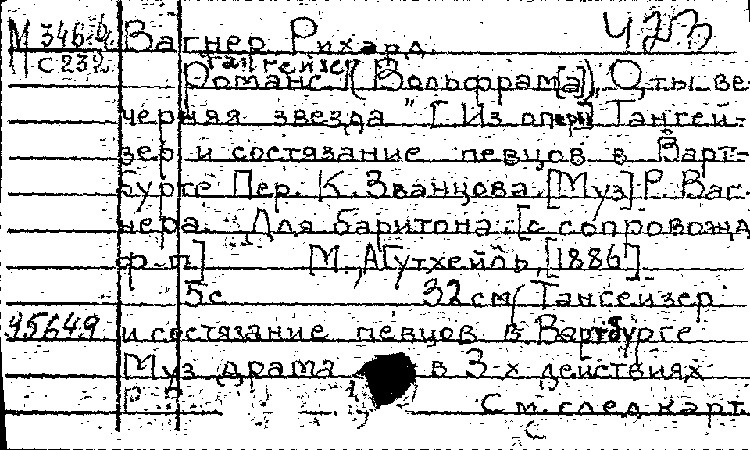 М 346.4 Вагнер Рихард. 423
С 232 Тангейзер
Романс (Вольфрам[а]), „О, ты ве-
черняя звезда" [Из оперы] Тангей-
зер и состязание певцов в Варт-
бурге Пер. К. Званцова. [Муз] Р. Ваг-
нера. Для баритона [с сопровожд
ф-п] М., А Гутхейль, [1886]
5с 32 см (Тангейзер
95649 и состязание певцов в Вартбурге
Муз драма в 3-х действиях
См. след карт.